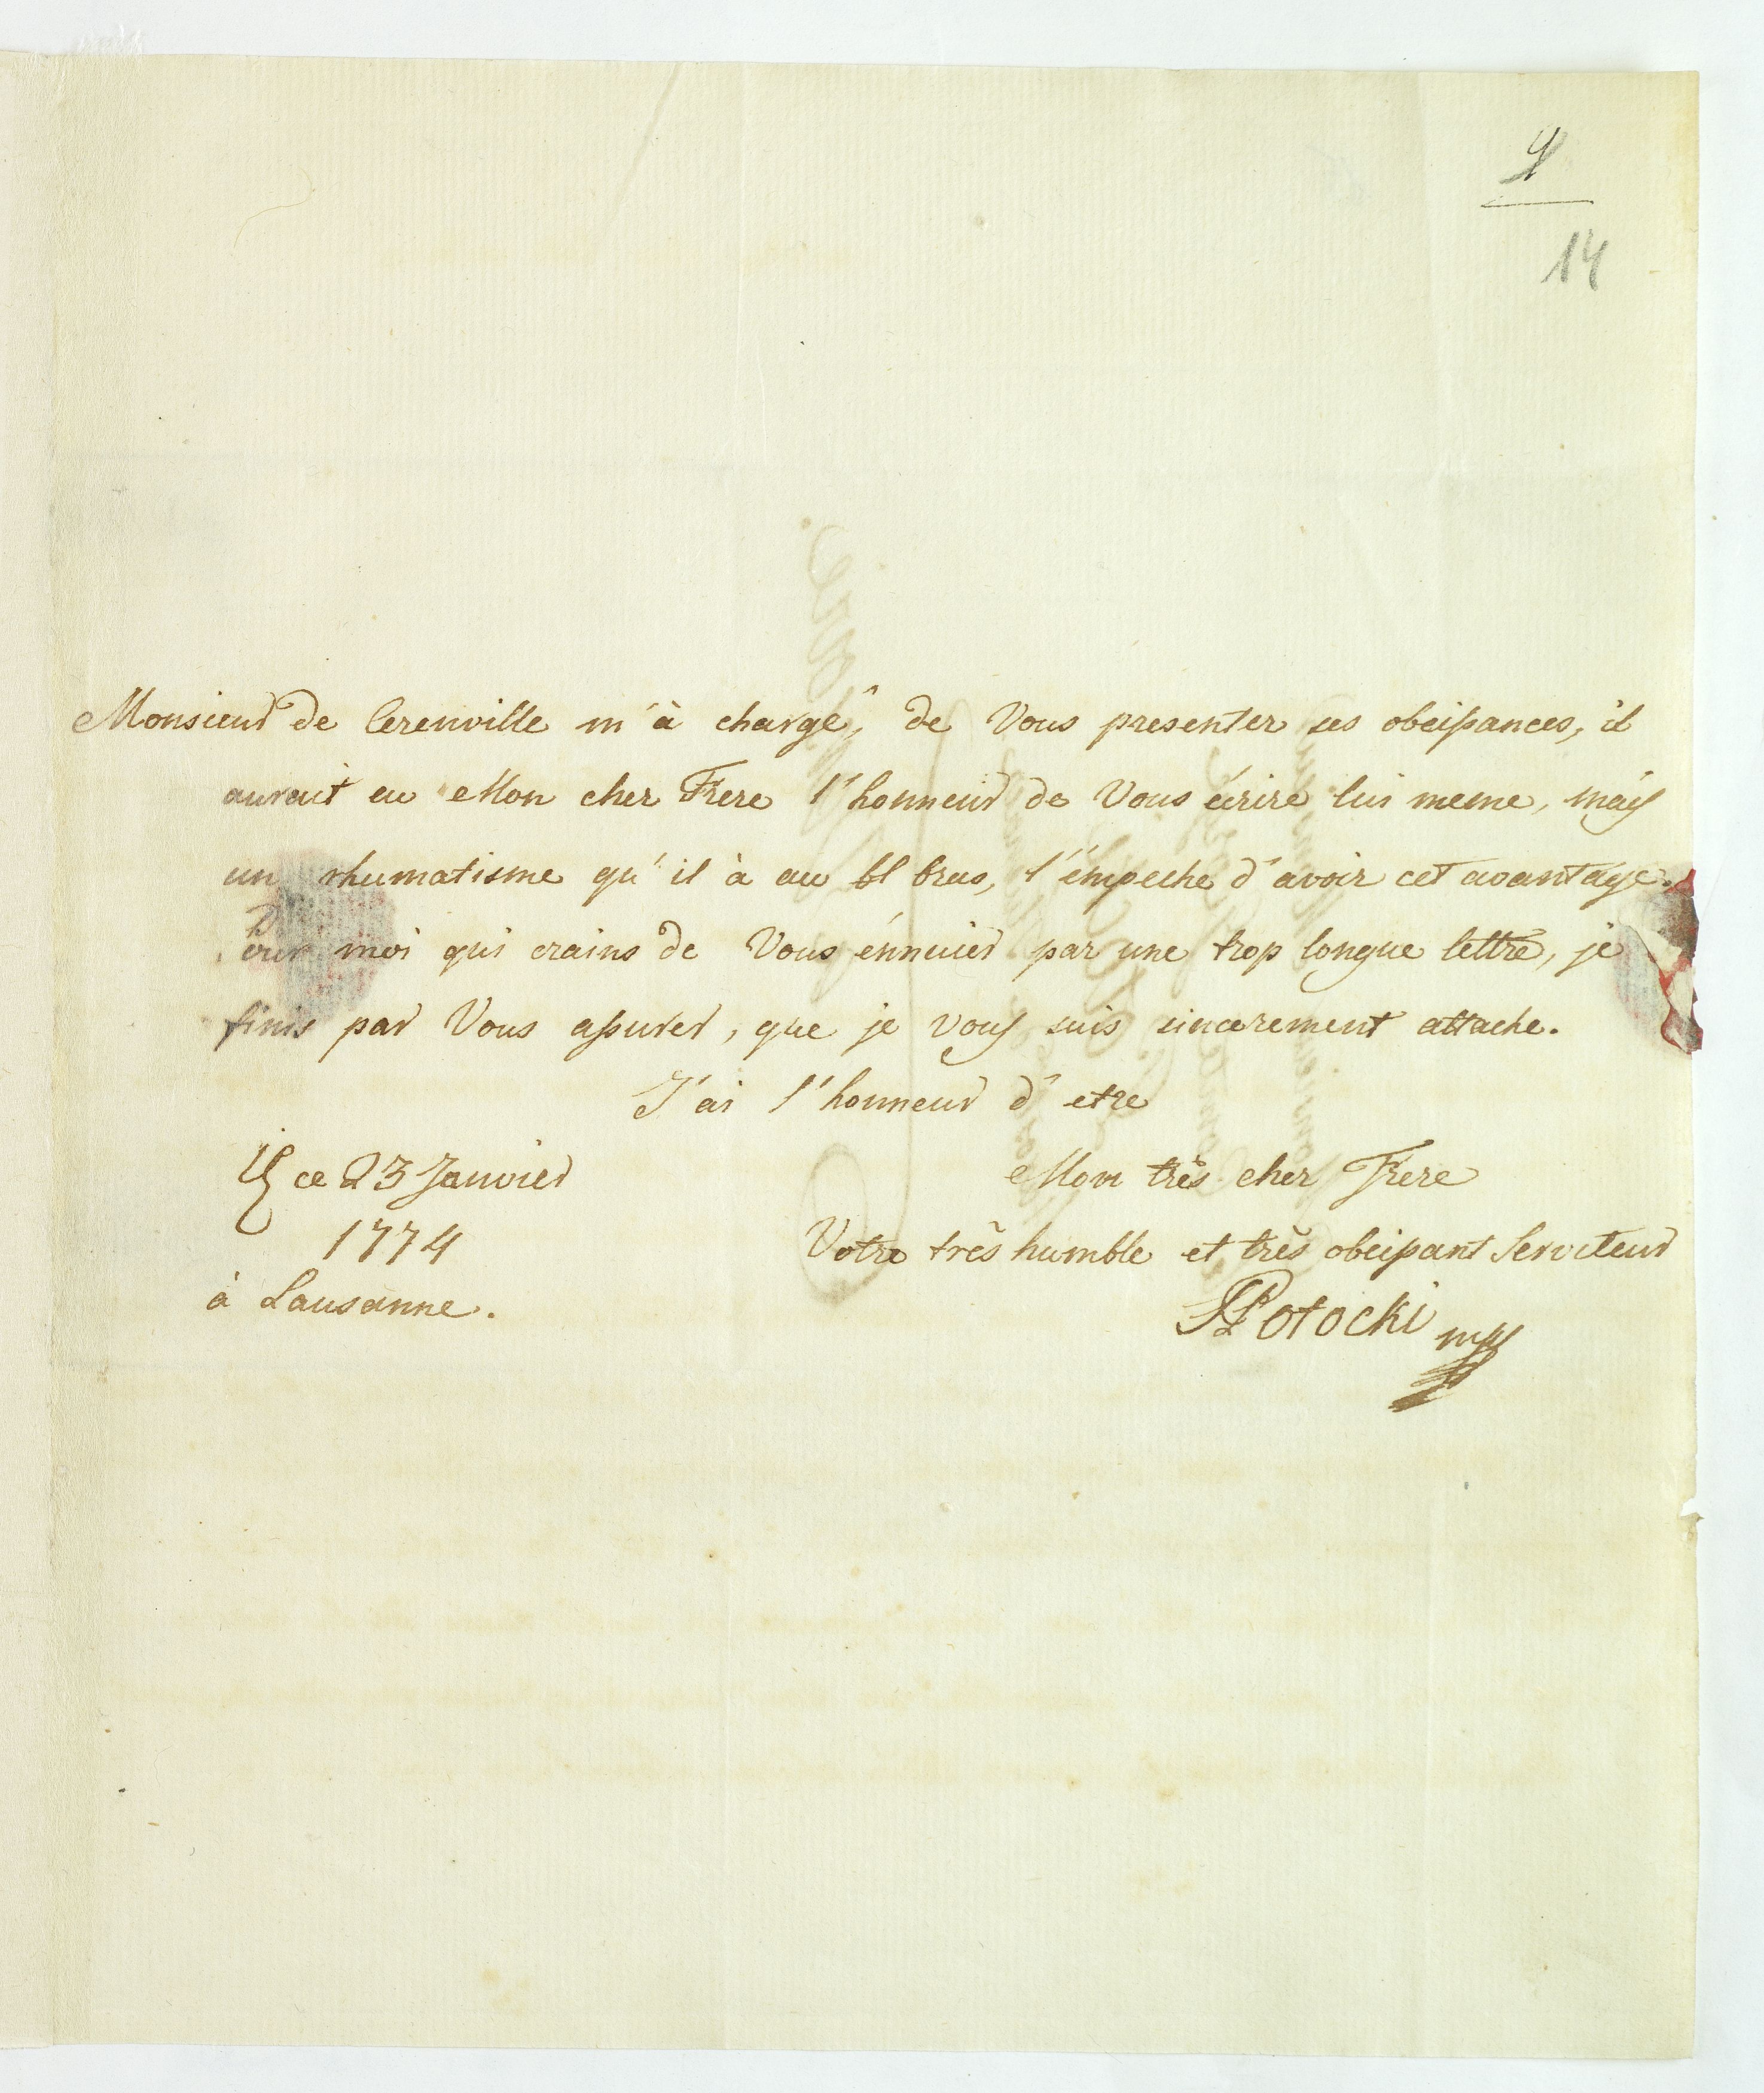 14
Monsieur de Cerenville m'à chargé, de Vous presenter ses obeissances, il
aurait eu Mon cher Frere l'honneur de Vous écrire lui meme, mais
un rhumatisme qu'il à au bras, l'émpeche d'avoir cet avantage.
Pour moi qui crains de Vous énnuier par une trop longue lettre, je
finis par Vous assurer, que je vous suis sincerement attache.
J'ai l'honneur d'etre
ce 23 Janvier
1774
à Lausanne.
Mon très cher Frere
Votre très humble et très obeissant Serviteur
Potocki